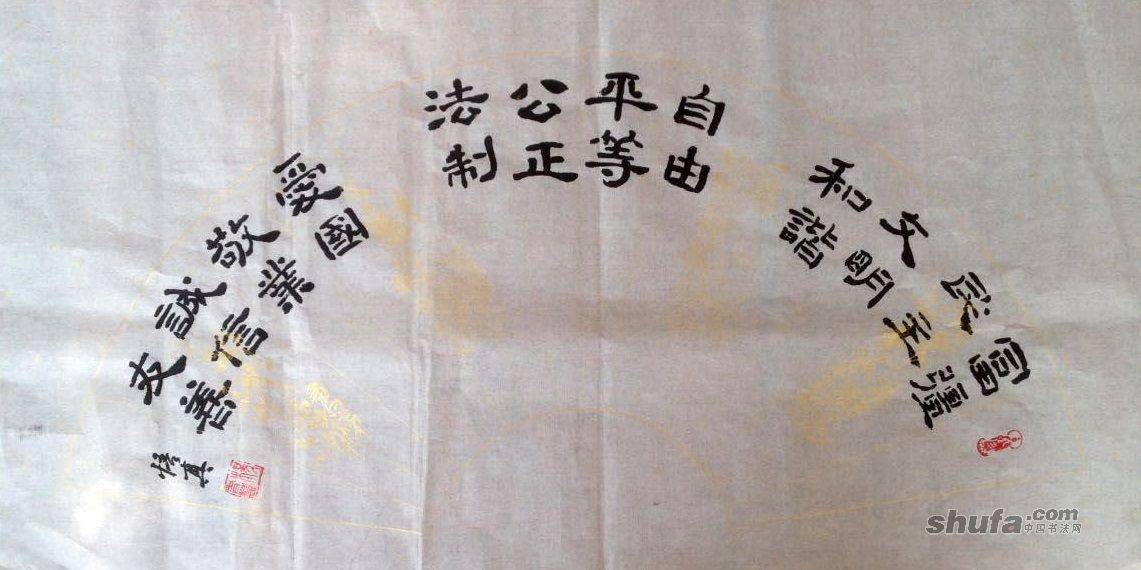 富彊
民主
文明
和谐
自由
平等
公正
法制
愛國
敬業
誠信
友善
悟真
shufa.com
中国书法网